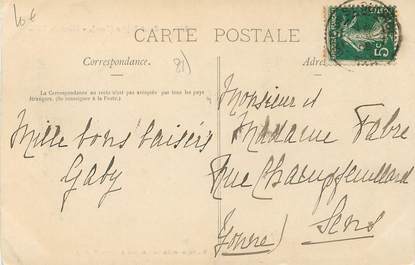 10€
CARTE POSTALE
Correspondance.
81)
La Correspondance au recto n'est pas acceptée par tous les pays
étrangers. (Se renseigner à la Poste.)
Mille bons baisers
Gaby
Monsieur et
Madame Fabre
Rue Champfeuillard
Sens
(Yonne)
5c